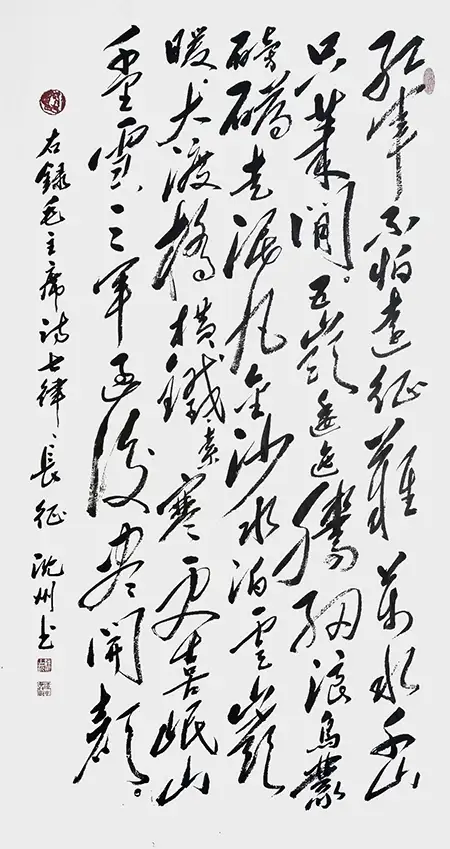 紅軍不怕遠征難萬水千山
只等閒。五嶺逶迤騰細浪烏蒙
磅礴走泥丸金沙水拍雲
暖大渡橋橫鐵索寒更喜岷山
千里雪三軍過後盡開顏。
右錄毛主席詩七律長征 州書